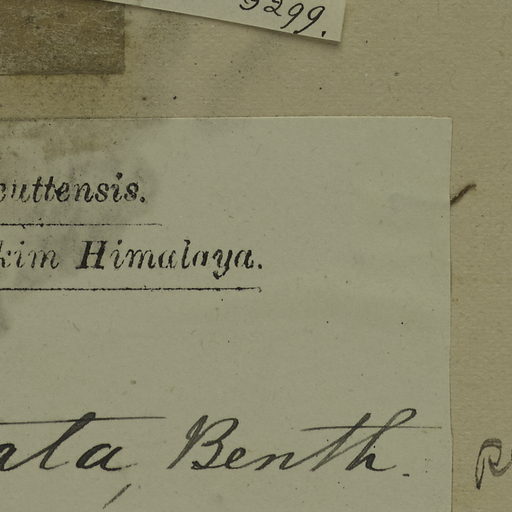 9299.
outtensis.
kim Himalaya.
ata Benth.